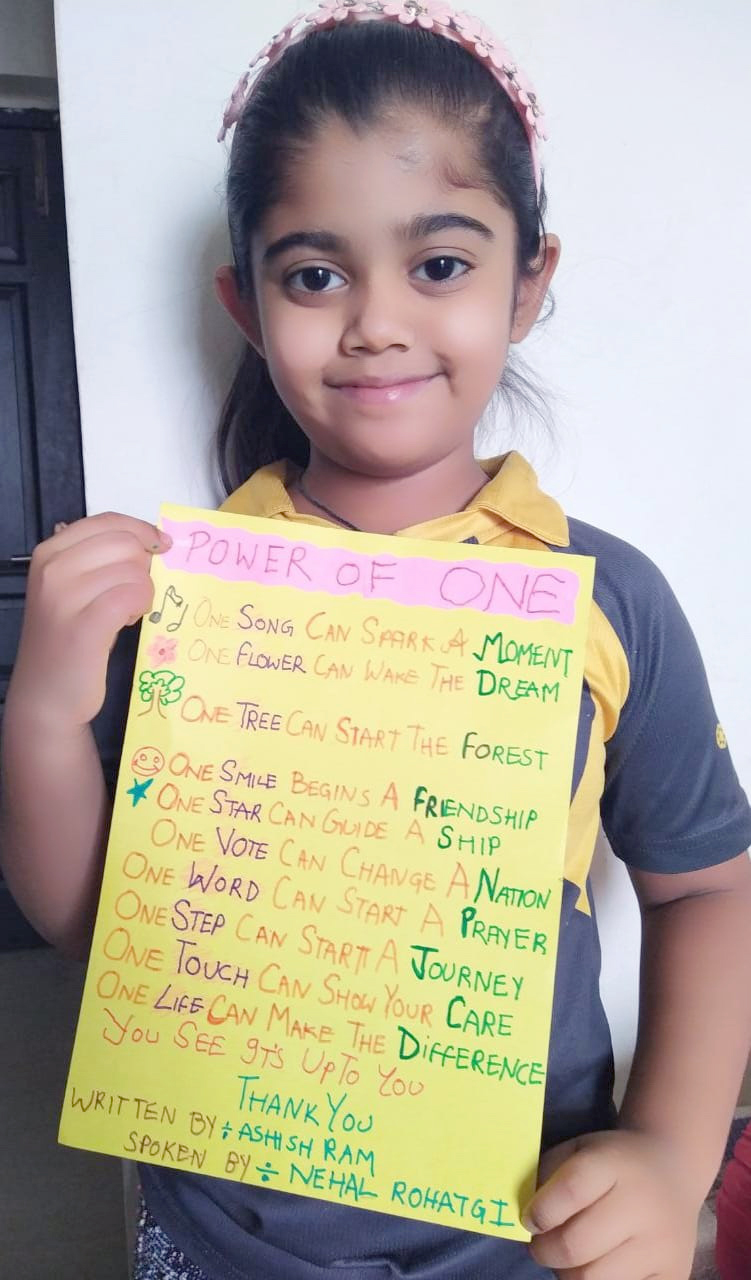 POWER OF ONE
ONE SONG CAN SPARK A MOMENT
ONE FLOWER CAN WAKE THE DREAM
ONE TREE CAN START THE FOREST
ONE SMILE BEGINS A FRIENDSHIP
ONE STAR CAN GUIDE A SHIP
ONE VOTE CAN CHANGE A NATION
ONE WORD CAN START A PRAYER
ONE STEP CAN START A JOURNEY
ONE TOUCH CAN SHOW YOUR CARE
ONE LIFE CAN MAKE THE DIFFERENCE
YOU SEE IT'S UP TO YOU
THANK YOU
WRITTEN BY ÷ ASHISH RAM
SPOKEN BY ÷ NEHAL ROHATGI